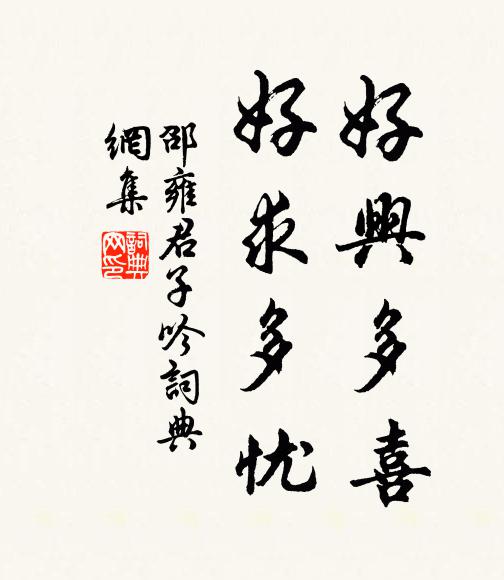 好興多喜
好求多忧
邵雍君子吟詞典
網集
詞典
网印